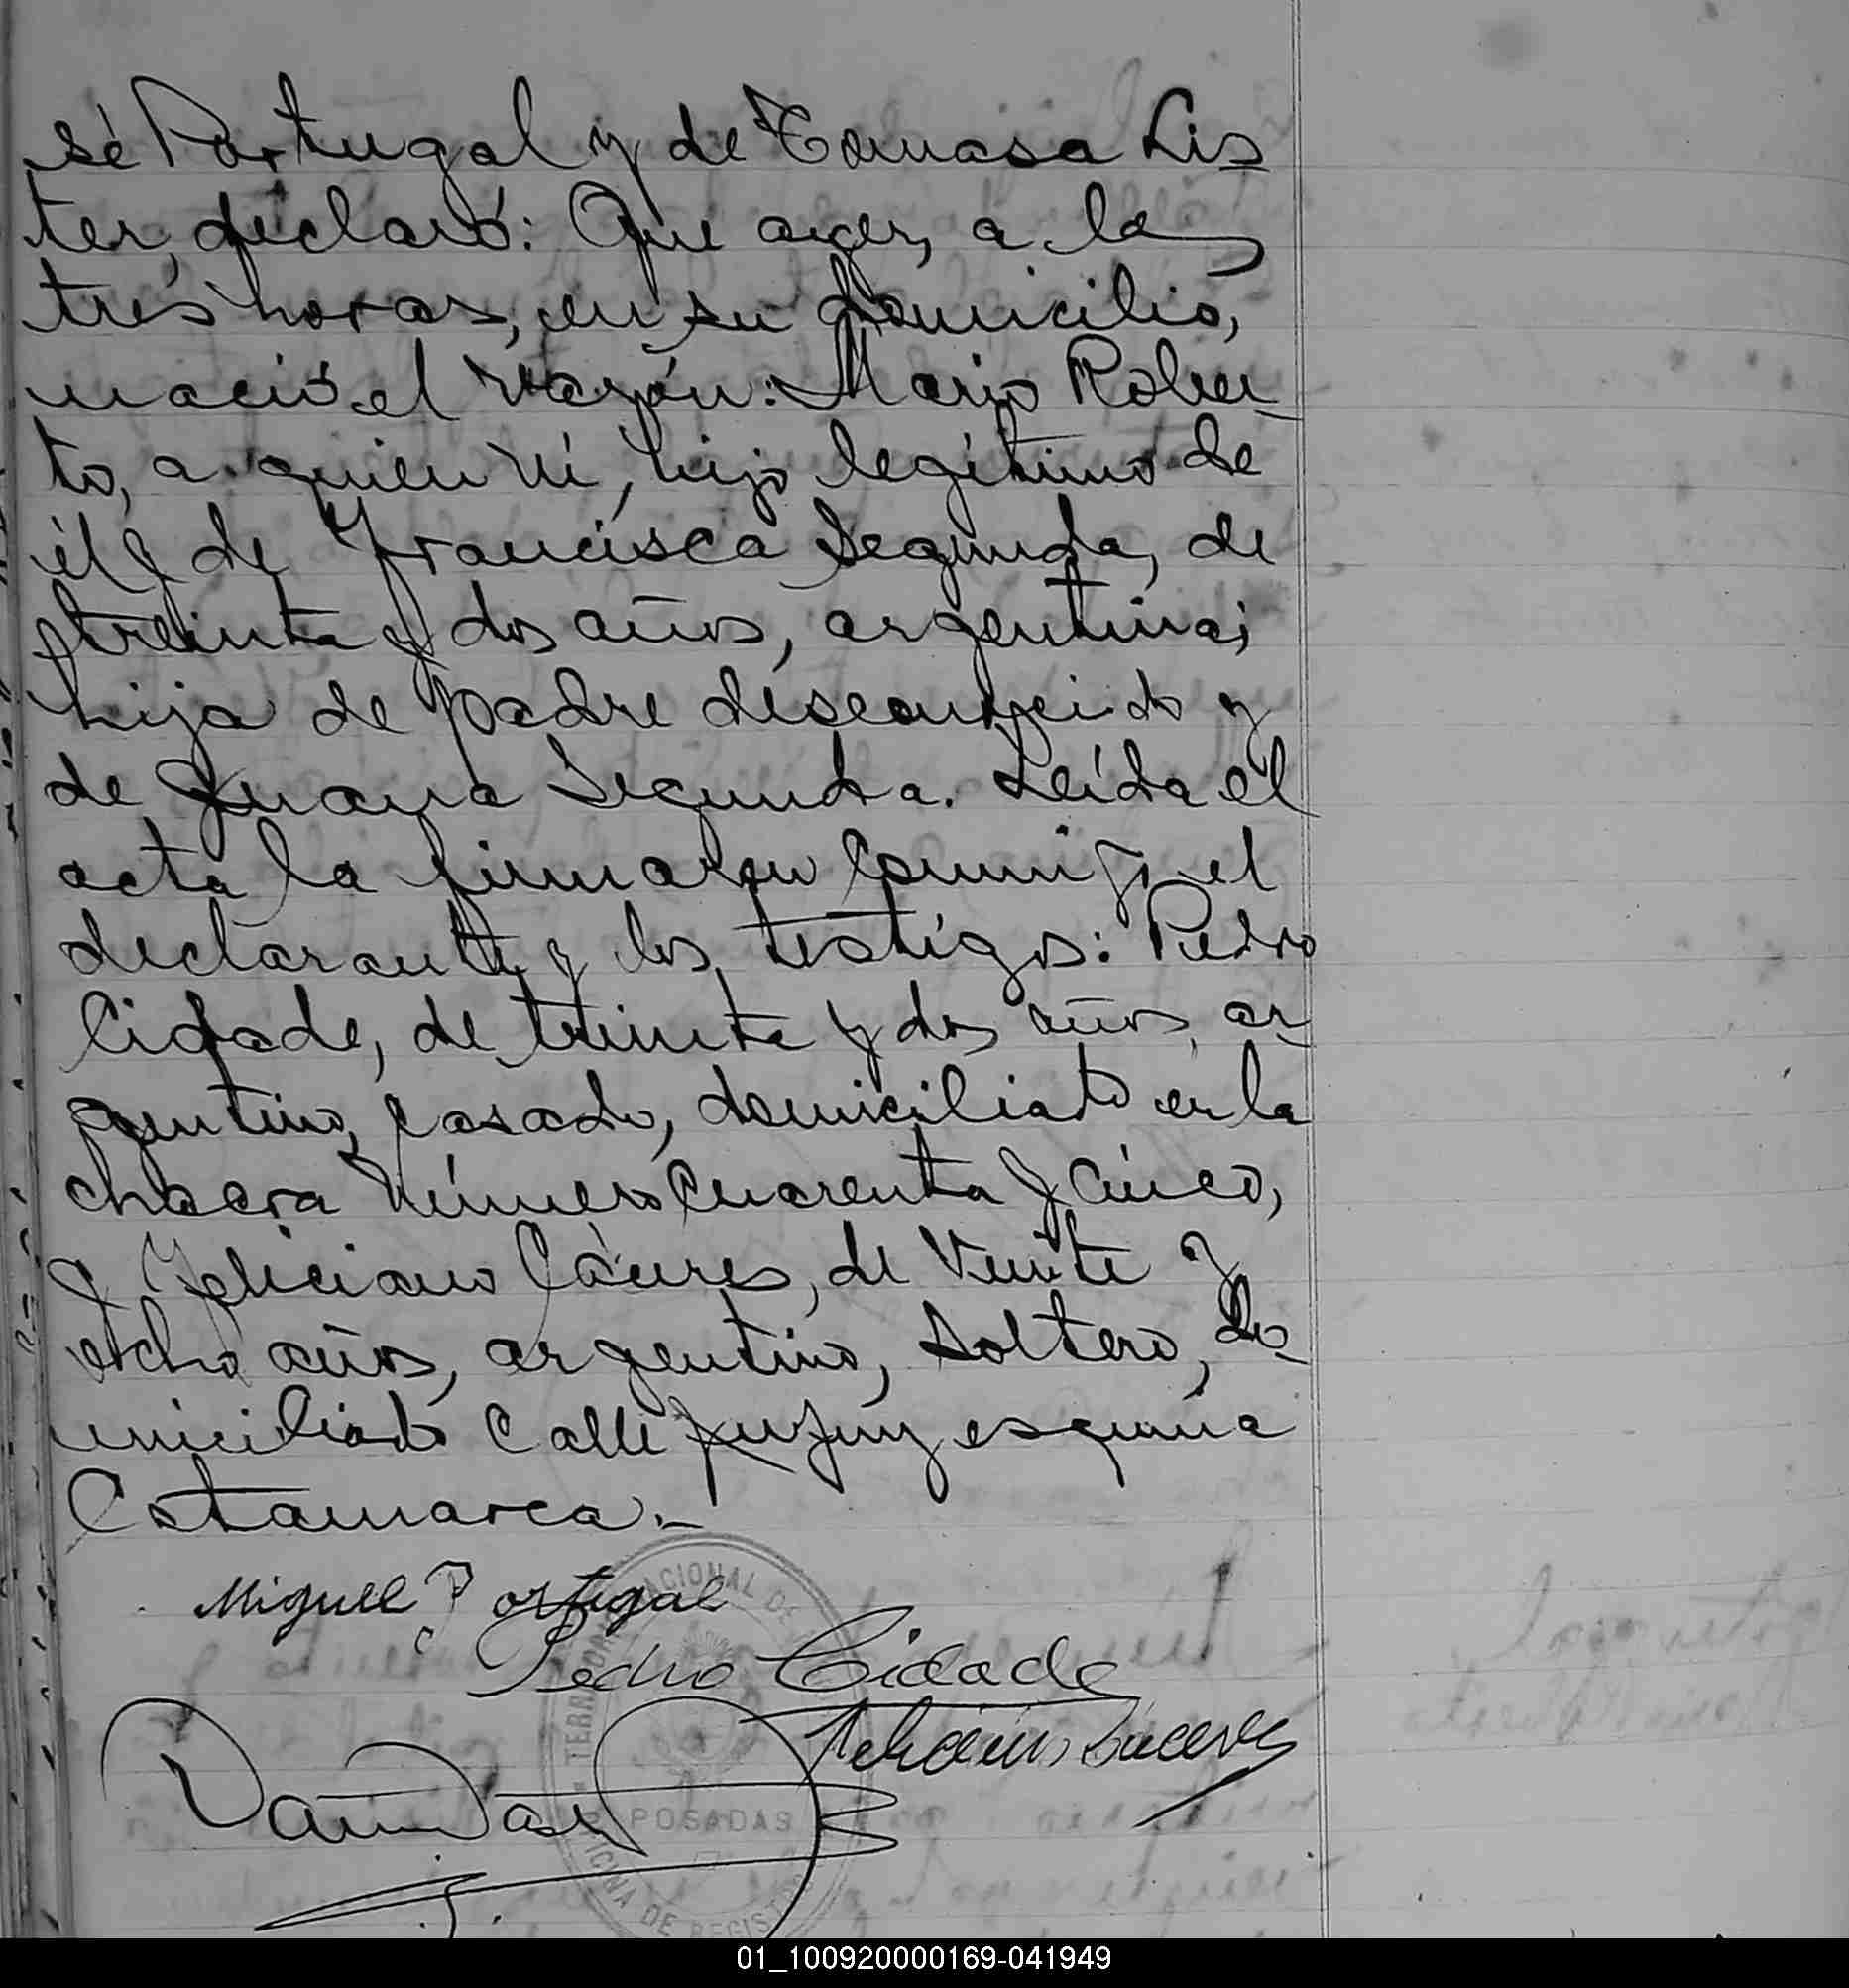 sé Portugal y de Tomasa Lis
ter, declaró: Que ayer, a las
tres horas, en su domicilio,
nació el varón: Mario Rober-
to, a quien vi, hijo legítimo de
él y de Francisca Segunda, de
treinta y dos años, argentina;
hija de padre desconocido y
de Juana Segunda. Leída el
acta la firmaron conmigo el
declarante y los testigos: Pedro
Cidade, de treinta y dos años, ar-
gentino, casado, domiciliado en la
chacra número cuarenta y cinco,
y Feliciano Cáceres, de veinte y
ocho años, argentino, soltero, do-
miciliado calle Jujuy esquina
Catamarca.-
Miguel Portugal
Pedro Cidade
POSADAS
01_100920000169-041949